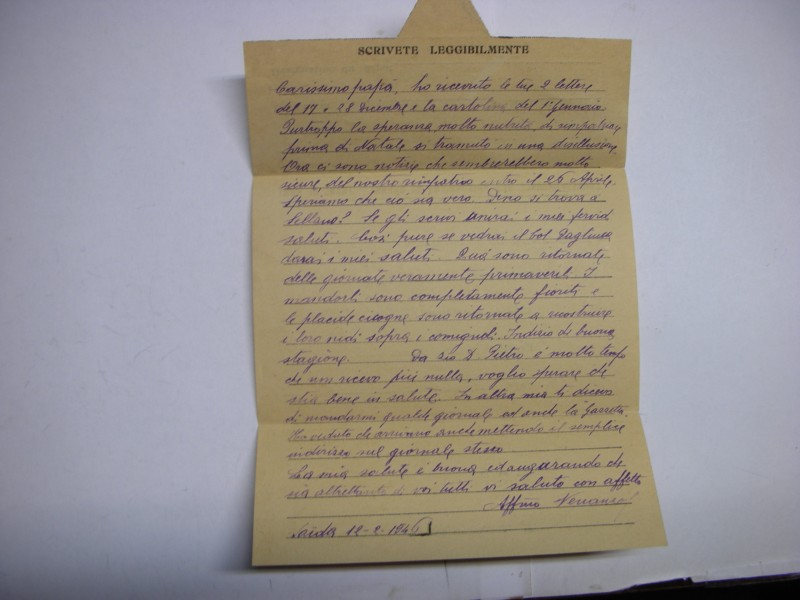 SCRIVETE LEGGIBILMENTE
Carissimo papà, ho ricevuto le tue 2 lettere
del 17 e 28 Dicembre e la cartolina del 1° Gennaio
Purtroppo la speranza molto nutrita di rimpatriare
prima di Natale si tramutò in una disillusione
Ora ci sono notizie che sembrerebbero molto
sicure, del nostro rimpatrio entro il 26 Aprile.
Speriamo che ciò sia vero. Dino si trova a
Se gli scrivi unirai i miei fervidi
saluti. Così pure se vedrai il Col
darai i miei saluti. Quà sono ritornate
delle giornate veramente primaverili. I
mandorli sono completamente fioriti e
le placide cicogne sono ritornate a ricostruire
i loro nidi sopra i comignoli. Indizio di buona
stagione. Da zio D. Pietro è molto tempo
che non ricevo più nulla, voglio sperare che
stia bene in salute. In altra mia ti dicevo
di mandarmi qualche giornale ed anche la Gazzetta.
Ho veduto che arrivano anche mettendo il semplice
indirizzo sul giornale stesso
La mia salute è buona ed augurando che
sia altrettanto di voi tutti vi saluto con affetto
Affmo
Saida 12-2-1946